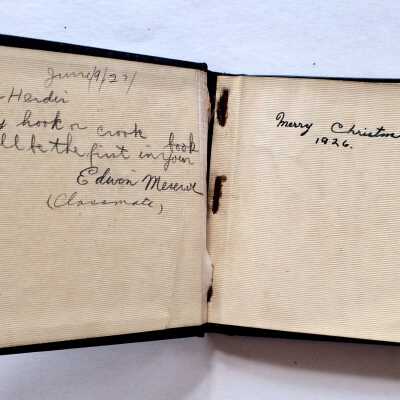 June/9/27/
Herdis
hook or crook
ll be the first in your book
Edwin Meserve
(Classmate)
Merry Christm
1926.